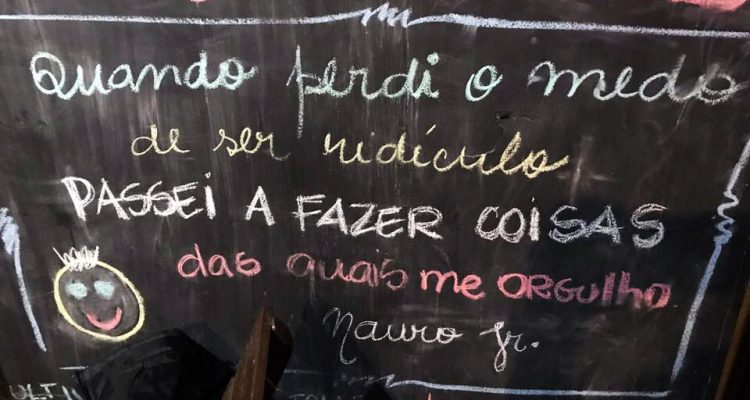 Quando perdi o medo
de ser ridículo
PASSEI A FAZER COISAS
das quais me ORGulho
Nauro Jr.